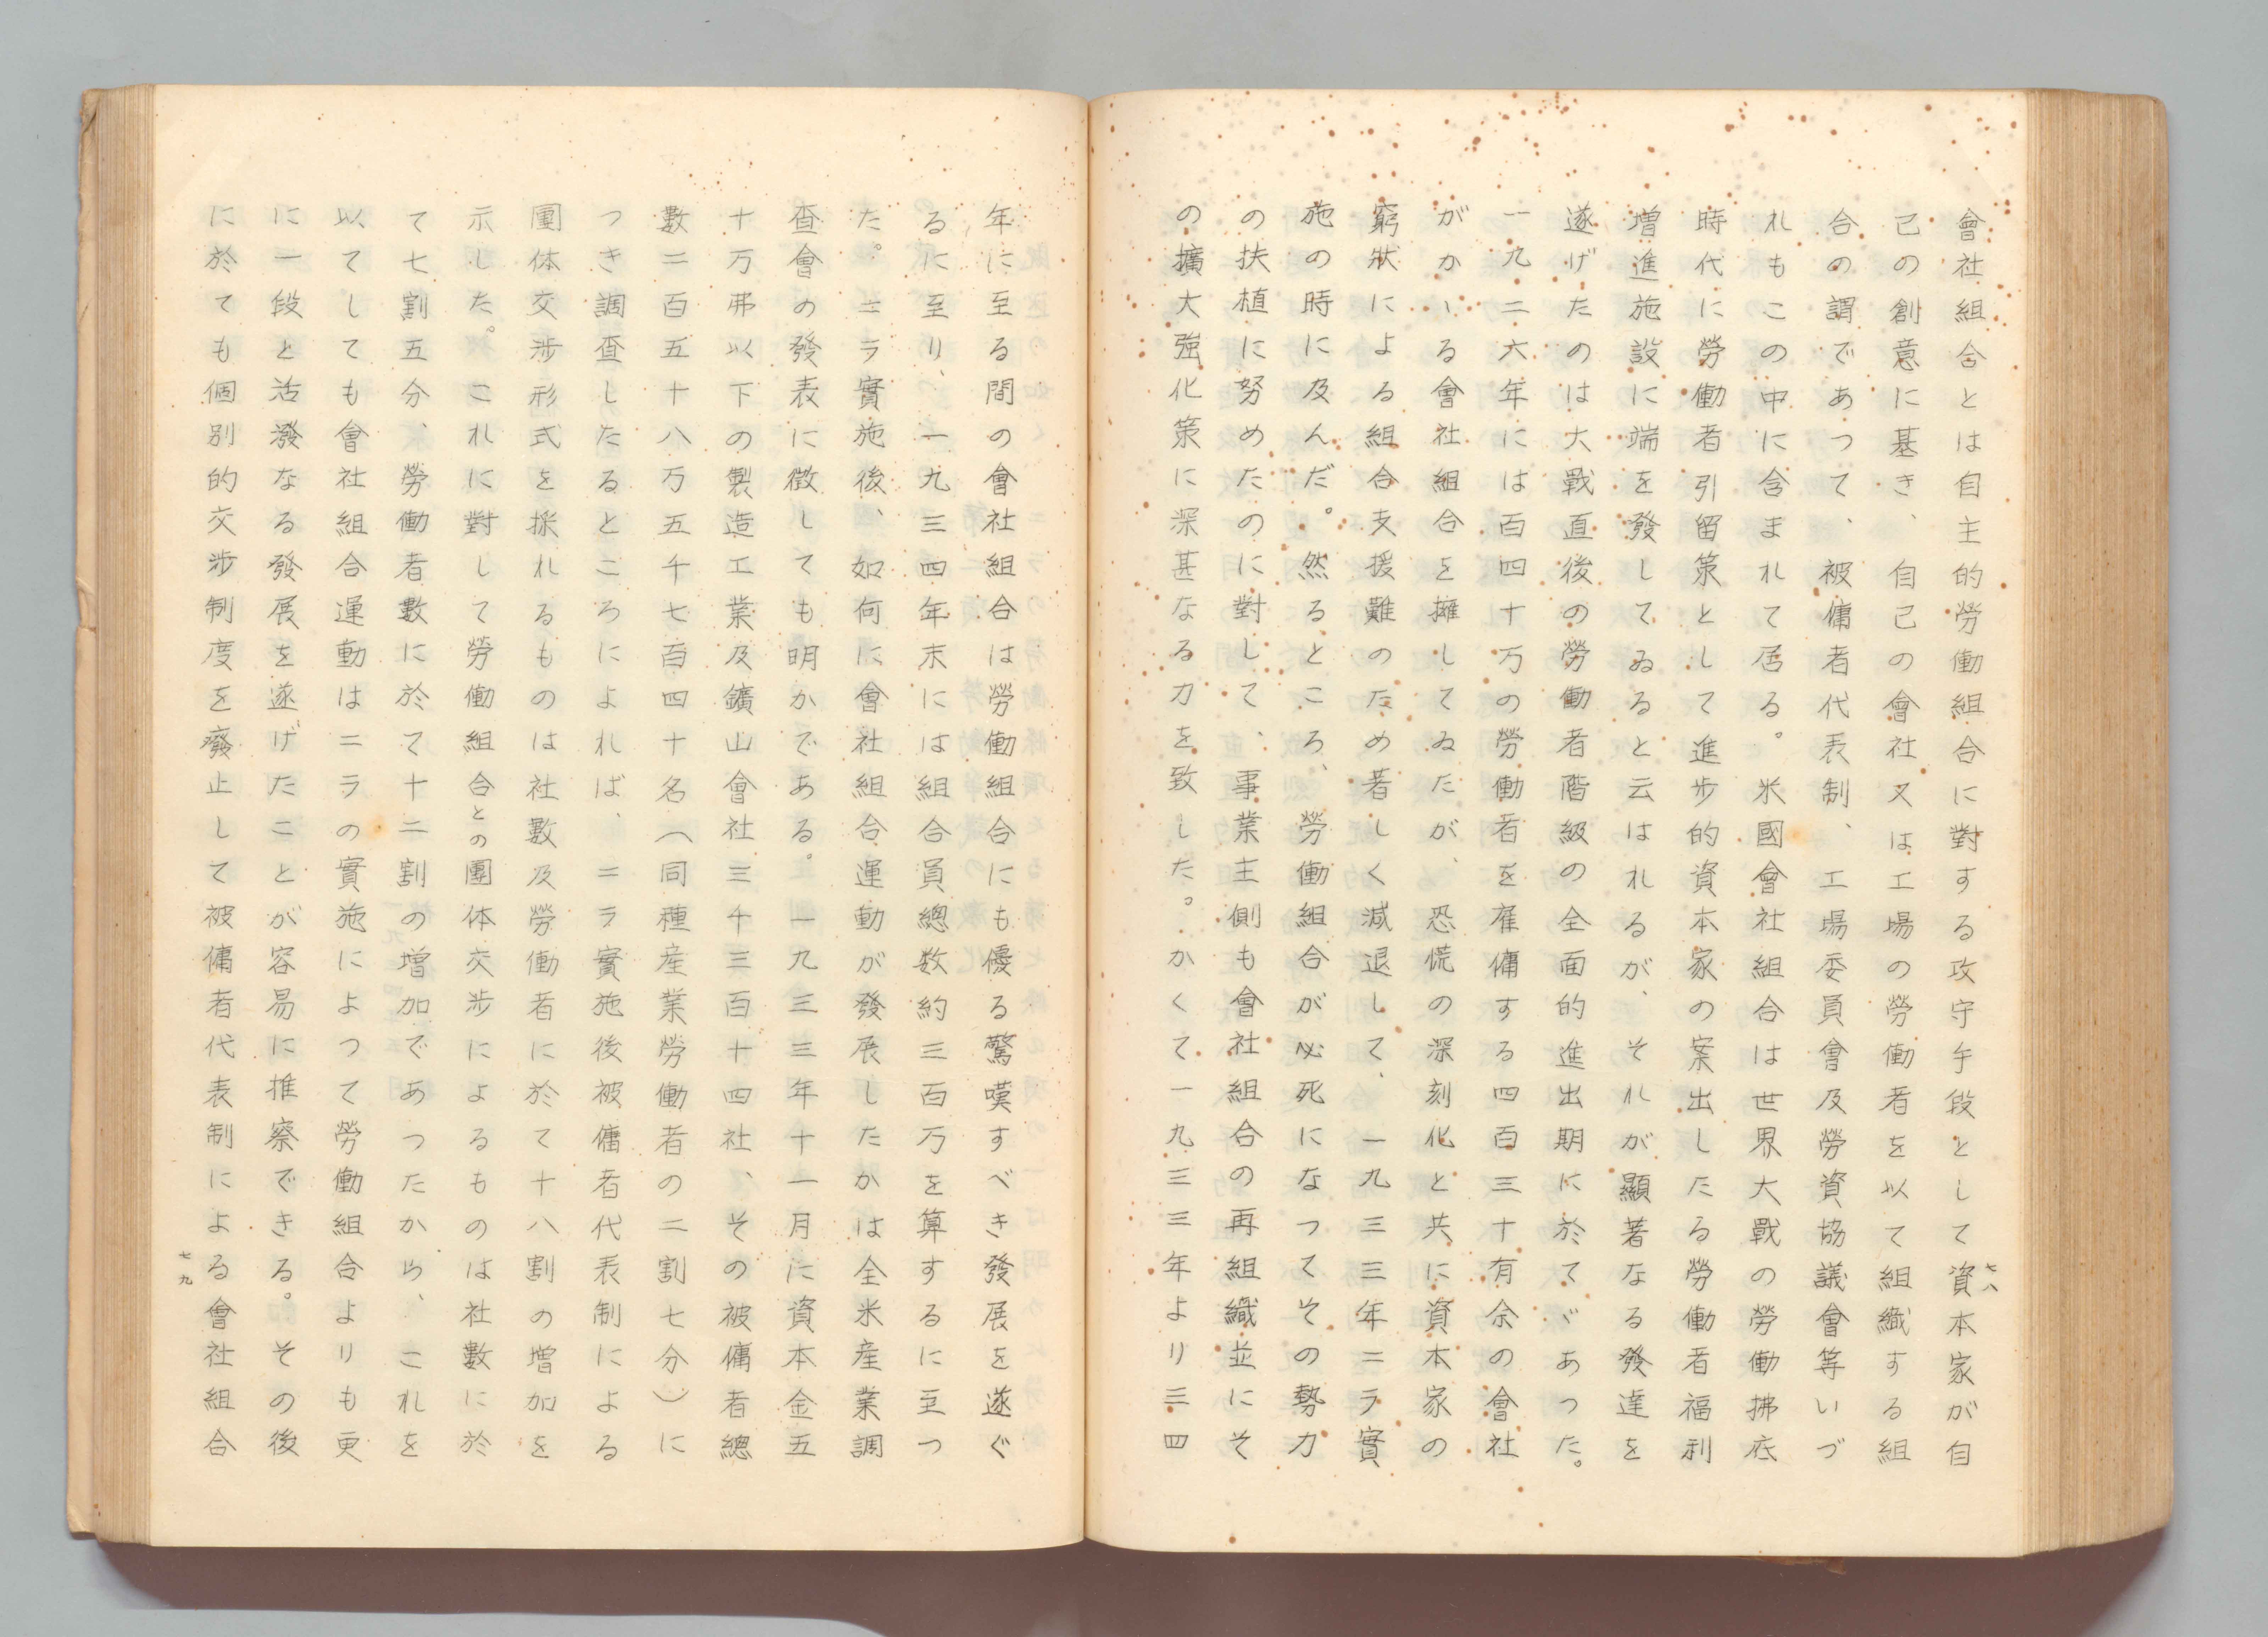 會社組合とは自主的勞働組合に對する攻守手段として資本家が自
己の創意に基き、自己の會社又は工場の勞働者を以て組織する組
合の謂であつて、被傭者代表制、工場委員會及勞資協議會等いづ
れもこの中に含まれて居る。米國會社組合は世界大戰の勞働拂底
時代に勞働者引留策として進步的資本家の案出したる勞働者福利
增進施設に端を發してゐると云はれるが、それが顯著なる發達を
遂げたのは大戰直後の勞働者階級の全面的進出期に於てゞあつた。
一九二六年には百四十万の勞働者を雇傭する四百三十有余の會社
がかゝる會社組合を擁してゐたが、恐慌の深刻化と共に資本家の
窮狀による組合支援難のため著しく減退して、一九三三年ニラ實
施の時に及んだ。然るところ、勞働組合が必死になつてその勢力
の扶植に努めたのに對して、事業主側も會社組合の再組織並にそ
の擴大強化策に深甚なる力を致した。かくて一九三三年より三四
七八
年に至る間の會社組合は勞働組合にも優る驚嘆すべき發展を遂ぐ
るに至り、一九三四年末には組合員總数約三百万を算するに至つ
た。ニラ實施後、如何に會社組合運動が發展したかは全米産業調
查會の發表に徵しても明かである。一九三三年十一月に資本金五
十万弗以下の製造工業及鑛山會社三千三百十四社、その被傭者總
數二百五十八万五千七百四十名（同種産業勞働者の二割七分）に
つき調查したるところによれば、ニラ實施後被傭者代表制による
團体交涉形式を採れるものは社數及勞働者に於て十八割の增加を
示した。これに對して勞働組合との團体交涉によるものは社數に於
て七割五分、勞働者數に於て十二割の增加であつたから、これを
以てしても會社組合運動はニラの實施によつて勞働組合よりも更
に一段と活潑なる發展を遂げたことが容易に推察できる。その後
に於ても個別的交涉制度を廢止して被傭者代表制による會社組合
七九